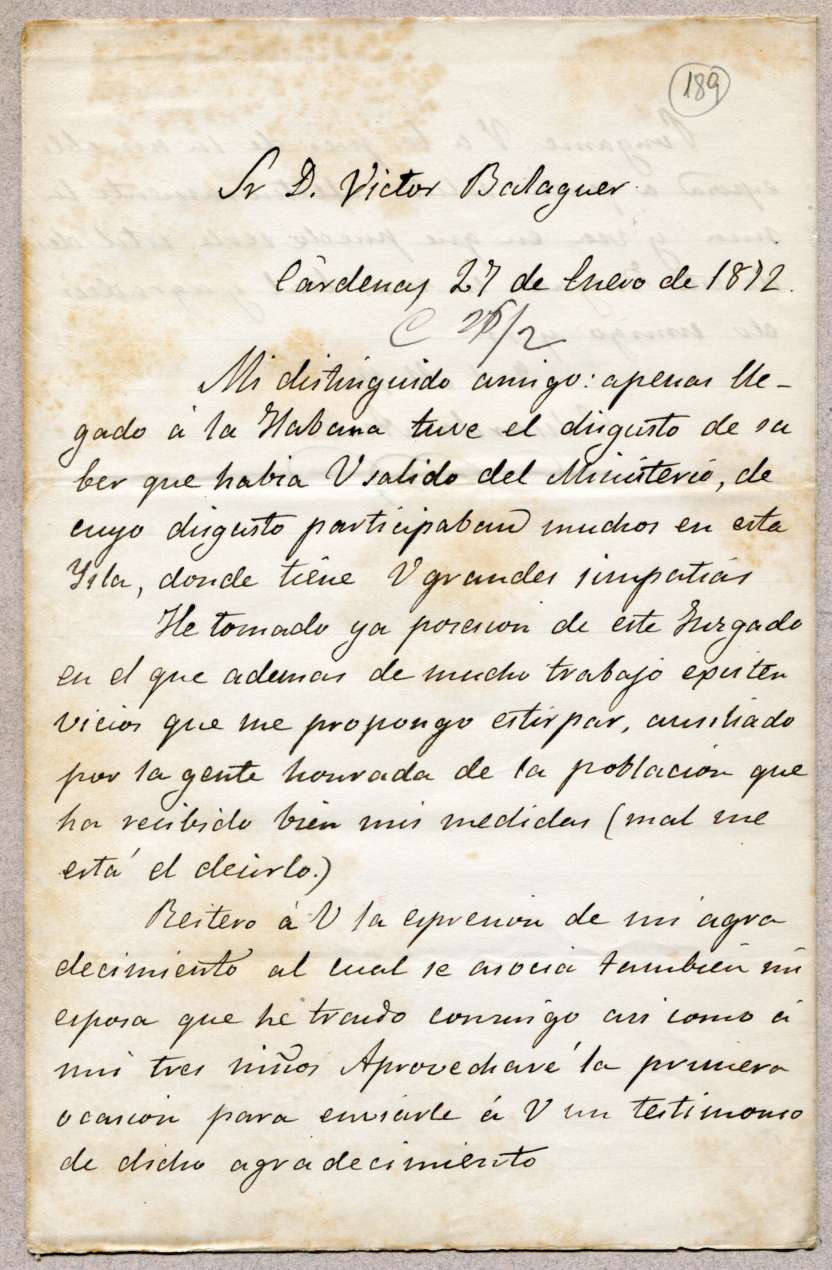 189
Sr D. Victor Balaguer
Cárdenas 27 de Enero de 1872.
C 26/2
Mi distinguido amigo: apenas lle-
gado á la Habana tuve el disgusto de sa
ber que habia V salido del Ministerio, de
cuyo disgusto participaban muchos en esta
Ysla, donde tiene V grandes simpatias
He tomado ya posesion de este Juzgado
en el que ademas de mucho trabajo existen
vicios que me propongo estirpar, ausiliado
por la gente honrada de la poblacion que
ha recibido bien mis medidas (mal me
está el decirlo.)
Reitero á V la espresion de mi agra
decimiento al cual se asocia tambien mi
esposa que he traido conmigo asi como á
mis tres niños Aprovecharé la primera
ocasion para enviarle á V un testimonio
de dicho agradecimiento